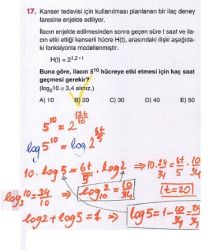 17. Kanser tedavisi için kullanılması planlanan bir ilaç deney
faresine enjekte ediliyor.
İlacın enjekte edilmesinden sonra geçen süre t saat ve ila-
cın etki ettiği kanserli hücre H(t), arasındaki ilişki aşağıda-
ki fonksiyonla modellenmiştir.
H(t) = 2^{1,2·t}
Buna göre, ilacın 5^{10} hücreye etki etmesi için kaç saat
geçmesi gerekir?
(log_2 10 ≅ 3,4 alınız.)
A) 10 B) 20 C) 30 D) 40 E) 50
5^{10} = 2^{12t/10}
log 5^{10} = log 2^{6t/5}
10·log5 = 6t/5 · log2 ⇒ 10·24/34 = 6t/5 · 10/34
log_2 10 = 34/10 ⇒ log_{10} 2 = 10/34 (t=20)
log2 + log5 = 1 ⇒ log5 = 1 - 10/34 = 24/34